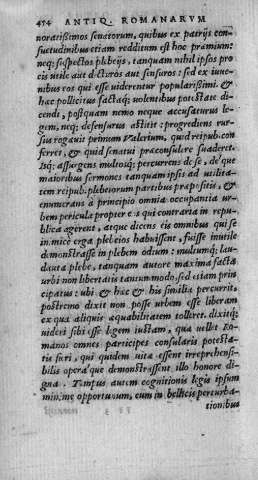 454 ANTIQ. ROMANARVM
noratißimos senatorum, quibus ex patrijs con-
suetudinibus etiam redditum est hoc præmium:
neq; suspectos plebeijs, tanquam nihil ipsos pro
cis utile aut dicturos aut sensuros: sed ex iuue-
nibus eos qui esse uiderentur popularißimi. &
hac pollicitus facta q; uolentibus potestate di-
cendi, postquam nemo neque accusaturus le-
gem, neq; defensurus astitit: progrediens rur-
sus rogauit primum Valerium, quid reipub. con
ferret, & quid senatui præconsulere suaderet.
Isq; assurgens multosq; percurrens de se, de'que
maioribus sermones tanquam ipsis ad utilita-
tem reipub. plebeiorum partibus præpositis, &
enumerans à principio omnia occupantia ur-
bem pericula propter eos qui contraria in repu-
blica agerent, atque dicens eis omnibus qui se
inimicè erga plebeios habuissent, fuisse inutile
demonstrasse in plebem odium: multumq; lau-
data plebe, tanquam autore maxima facta
urbi non libertatis tantummodo, sed etiam prin
cipatus: ubi & hæc & his similia percurrit,
postremo dixit non posse urbem esse liberam
ex qua aliquis æquabilitatem tolleret. dixitq;
uideri sibi esse legem iustam, quæ uellet Ro-
manos omnes participes consularis potesta-
tis fieri, qui quidem uita essent irreprehensi-
bilis opera'que demonstrassent illo honore di-
gna. Tempus autem cognitionis legis ipsum
minime opportunum, cum in bellicis perturba-
tionibus